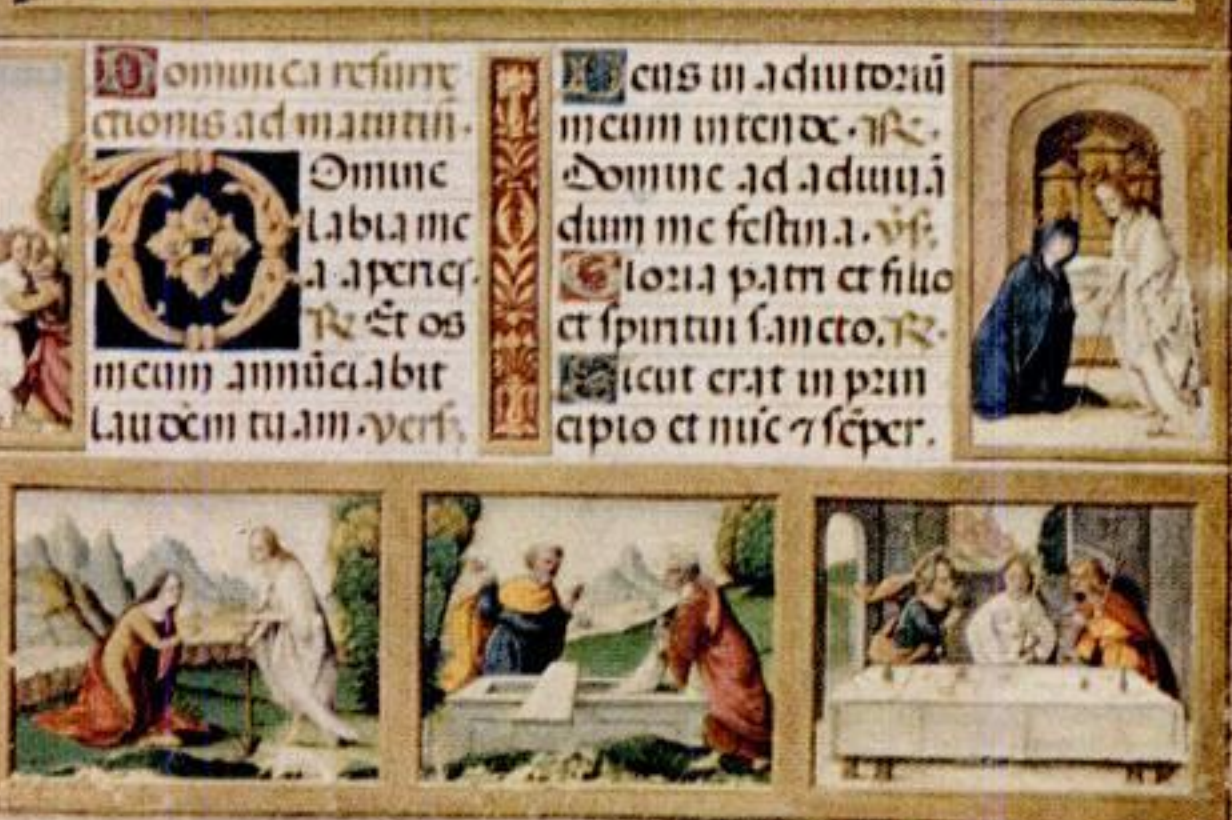 Dominica resurre
ctionis ad matutinũ.
Domine
labia me
a aperies.
℟ Et os
meum annũciabit
laudem tuam. vers.
Deus in adiutoriũ
meum intende. ℟.
Domine ad adiuuã
dum me festina. v̄s.
Gloria patri et filio
et spiritui sancto. ℟.
Sicut erat in prin
cipio et nũc ⁊ sẽper.